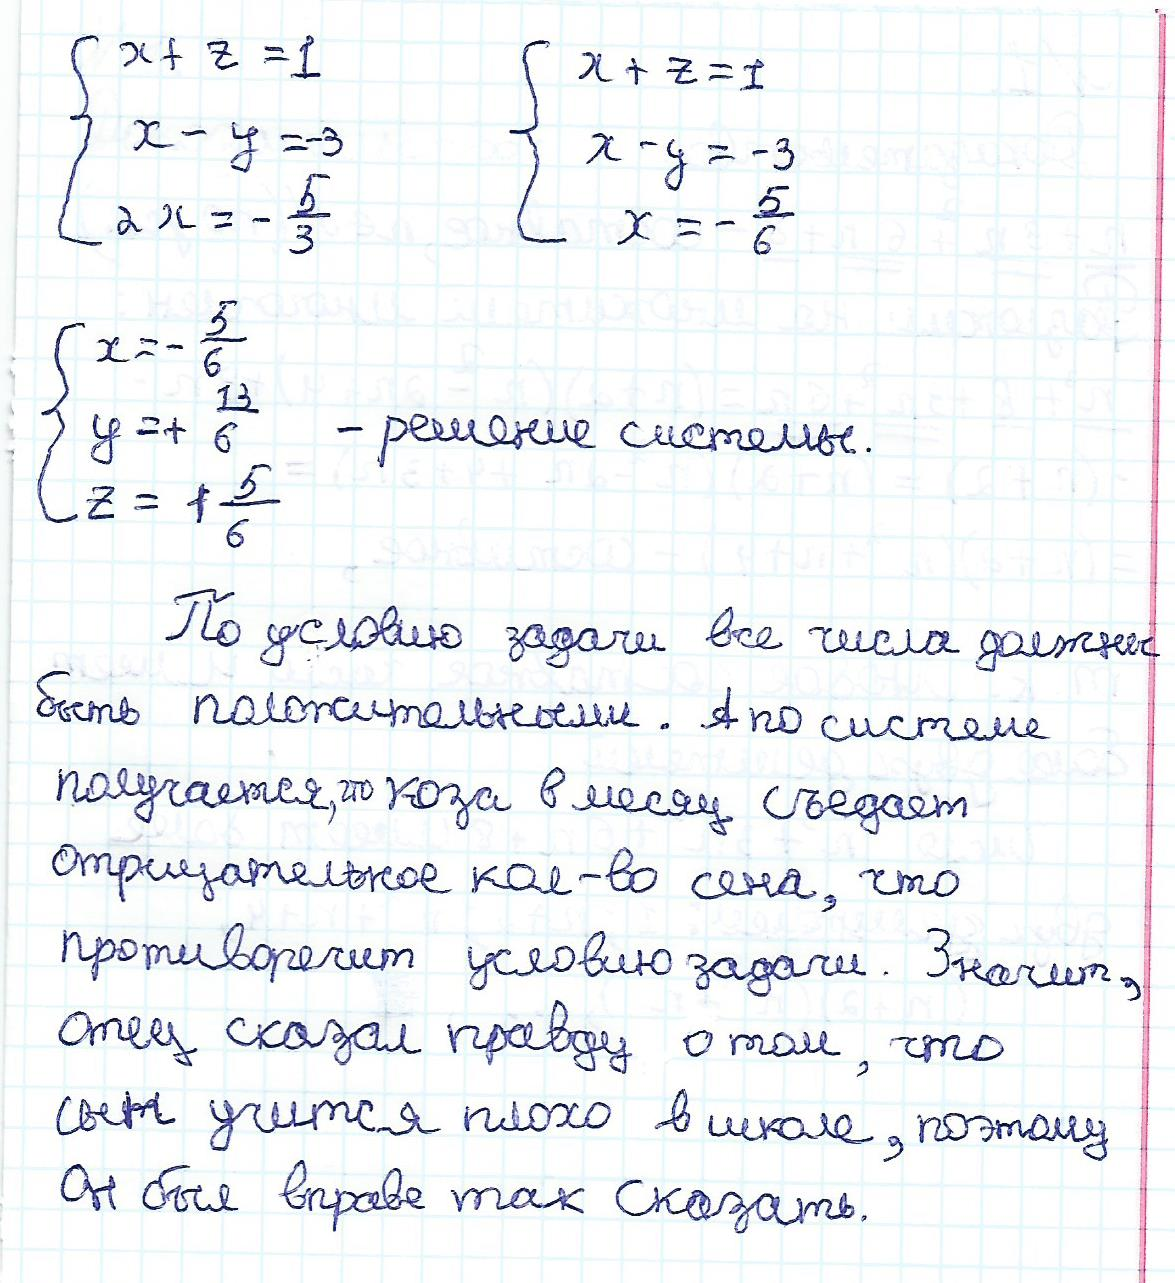 x + z = 1
x - y = -3
2x = - 5/3
x + z = 1
x - y = -3
x = - 5/6
x = - 5/6
y = + 13/6 - решение системы.
z = 1 5/6
По условию задачи все числа должны
быть положительными. А по системе
получается, что коза в месяц съедает
отрицательное кол-во сена, что
противоречит условию задачи. Значит,
отец сказал правду о том, что
сын учится плохо в школе, поэтому
он был вправе так сказать.